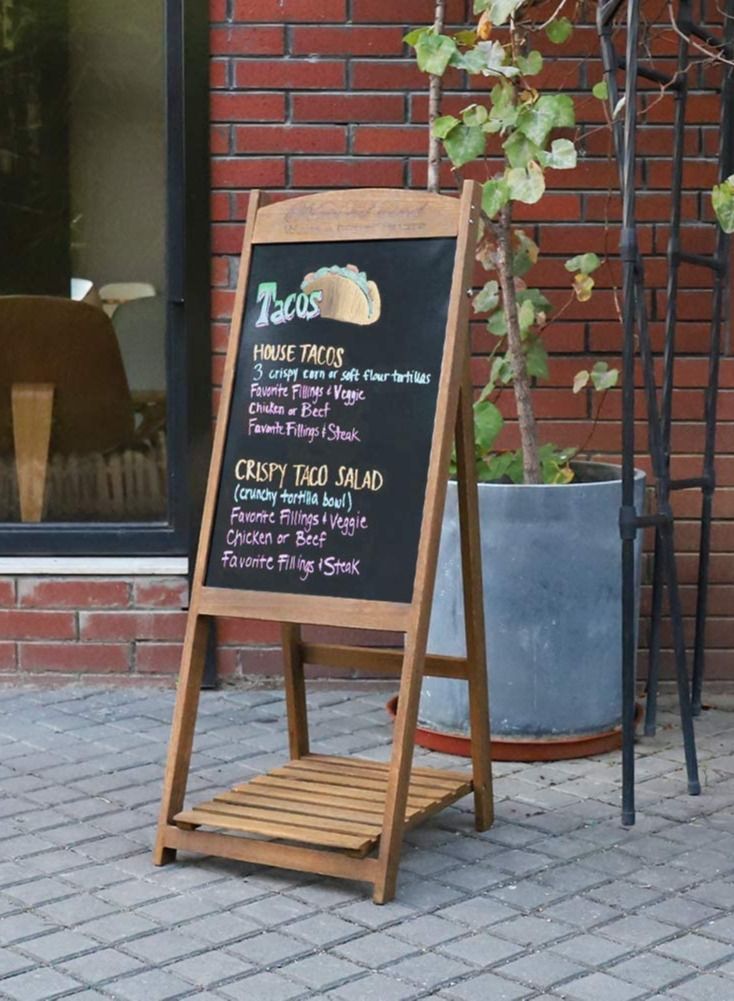 Tacos
HOUSE TACOS
3 crispy corn or soft flour tortillas
Favorite Fillings & Veggie
Chicken or Beef
Favorite Fillings & Steak
CRISPY TACO SALAD
(crunchy tortilla bowl)
Favorite Fillings & Veggie
Chicken or Beef
Favorite Fillings & Steak